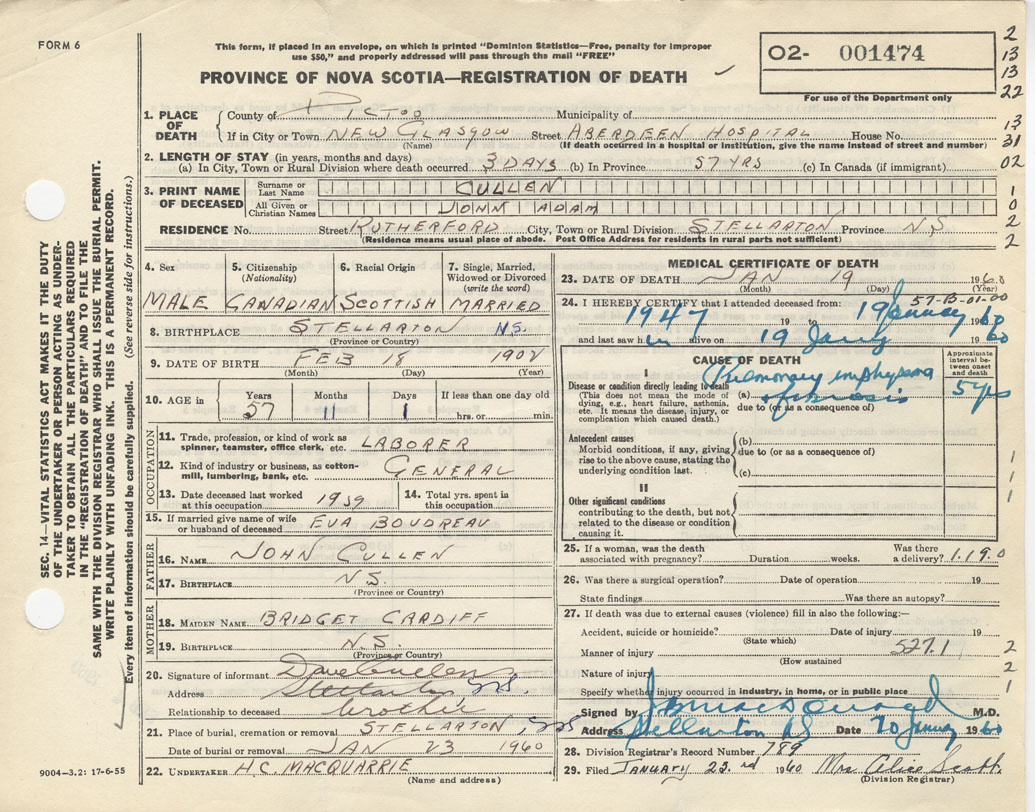 FORM 6
This form, if placed in an envelope, on which is printed "Dominion Statistics—Free, penalty for improper
use $50," and properly addressed will pass through the mail "FREE"
PROVINCE OF NOVA SCOTIA—REGISTRATION OF DEATH ✓
02- 001474
For use of the Department only
2
13
13
22
13
31
02
1
0
2
2
1. PLACE OF DEATH
County of PICTOU Municipality of
If in City or Town NEW GLASGOW Street ABERDEEN HOSPITAL House No.
(Name) (If death occurred in a hospital or institution, give the name instead of street and number)
2. LENGTH OF STAY (in years, months and days)
(a) In City, Town or Rural Division where death occurred 3 DAYS (b) In Province 57 YRS (c) In Canada (if immigrant)
3. PRINT NAME OF DECEASED
Surname or Last Name CULLEN
All Given or Christian Names JOHN ADAM
RESIDENCE No. Street RUTHERFORD City, Town or Rural Division STELLARTON Province N.S.
(Residence means usual place of abode. Post Office Address for residents in rural parts not sufficient)
4. Sex MALE
5. Citizenship (Nationality) CANADIAN
6. Racial Origin SCOTTISH
7. Single, Married, Widowed or Divorced (write the word) MARRIED
8. BIRTHPLACE STELLARTON N.S.
(Province or Country)
9. DATE OF BIRTH FEB 18
(Month) (Day) (Year)
10. AGE in Years 57 Months 11 Days 1 If less than one day old hrs. or min.
OCCUPATION
11. Trade, profession, or kind of work as spinner, teamster, office clerk, etc. LABORER
12. Kind of industry or business, as cotton-mill, lumbering, bank, etc. GENERAL
13. Date deceased last worked at this occupation 1959
14. Total yrs. spent in this occupation
15. If married give name of wife or husband of deceased EVA BOUDREAU
FATHER
16. NAME JOHN CULLEN
17. BIRTHPLACE N.S.
(Province or Country)
MOTHER
18. MAIDEN NAME BRIDGET CARDIFF
19. BIRTHPLACE N.S.
(Province or Country)
20. Signature of informant Dave Cullen
Address Stellarton N.S.
Relationship to deceased brother
21. Place of burial, cremation or removal STELLARTON, NS
Date of burial or removal JAN 23 1960
22. UNDERTAKER H.C. MACQUARRIE
(Name and address)
MEDICAL CERTIFICATE OF DEATH
23. DATE OF DEATH JAN 19 1960
(Month) (Day) (Year)
57-B-01-00
24. I HEREBY CERTIFY that I attended deceased from:
1947 19 to 19 January 1960
and last saw him alive on 19 Jany 1960
CAUSE OF DEATH
Approximate interval between onset and death
I
Disease or condition directly leading to death
(This does not mean the mode of dying, e.g., heart failure, asthenia, etc. It means the disease, injury, or complication which caused death.)
(a) Pulmonary emphysema & fibrosis 5 yrs
due to (or as a consequence of)
Antecedent causes
Morbid conditions, if any, giving rise to the above cause, stating the underlying condition last.
(b)
due to (or as a consequence of)
(c)
1
1
II
Other significant conditions
contributing to the death, but not related to the disease or condition causing it.
1
25. If a woman, was the death associated with pregnancy? Duration weeks. Was there a delivery? 1.19.0
26. Was there a surgical operation? Date of operation 19
State findings Was there an autopsy?
27. If death was due to external causes (violence) fill in also the following:—
Accident, suicide or homicide? Date of injury 19
(State which)
Manner of injury 527.1 2
(How sustained)
Nature of injury 2
Specify whether injury occurred in industry, in home, or in public place 1
Signed by M.D.
Address Stellarton NS Date 20 January 1960
28. Division Registrar's Record Number 789
29. Filed JANUARY 23.rd 1960 Mrs. Alice Scott.
(Division Registrar)
SEC. 14—VITAL STATISTICS ACT MAKES IT THE DUTY
OF THE UNDERTAKER OR PERSON ACTING AS UNDER-
TAKER TO OBTAIN ALL THE PARTICULARS REQUIRED
IN THE "REGISTRATION OF DEATH" AND TO FILE THE
SAME WITH THE DIVISION REGISTRAR WHO SHALL ISSUE THE BURIAL PERMIT.
WRITE PLAINLY WITH UNFADING INK. THIS IS A PERMANENT RECORD.
Every item of information should be carefully supplied. (See reverse side for instructions.)
9004-3.2: 17-6-55